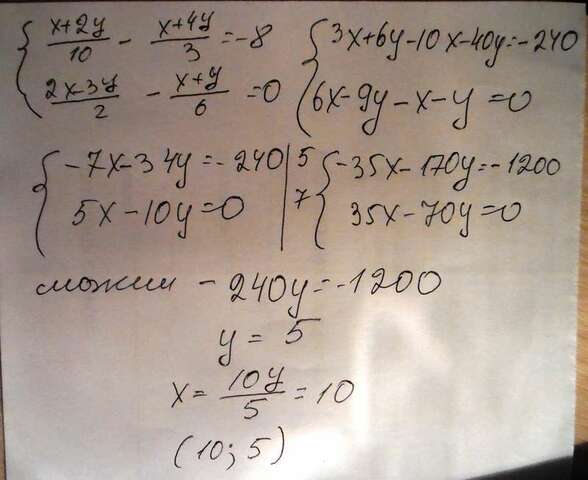 (x+2y)/10 - (x+4y)/3 = -8
(2x-3y)/2 - (x+y)/6 = 0
3x+6y-10x-40y=-240
6x-9y-x-y=0
-7x-34y=-240 | 5
5x-10y=0 | 7
-35x-170y=-1200
35x-70y=0
сложим -240y=-1200
y=5
x= 10y/5 =10
(10; 5)